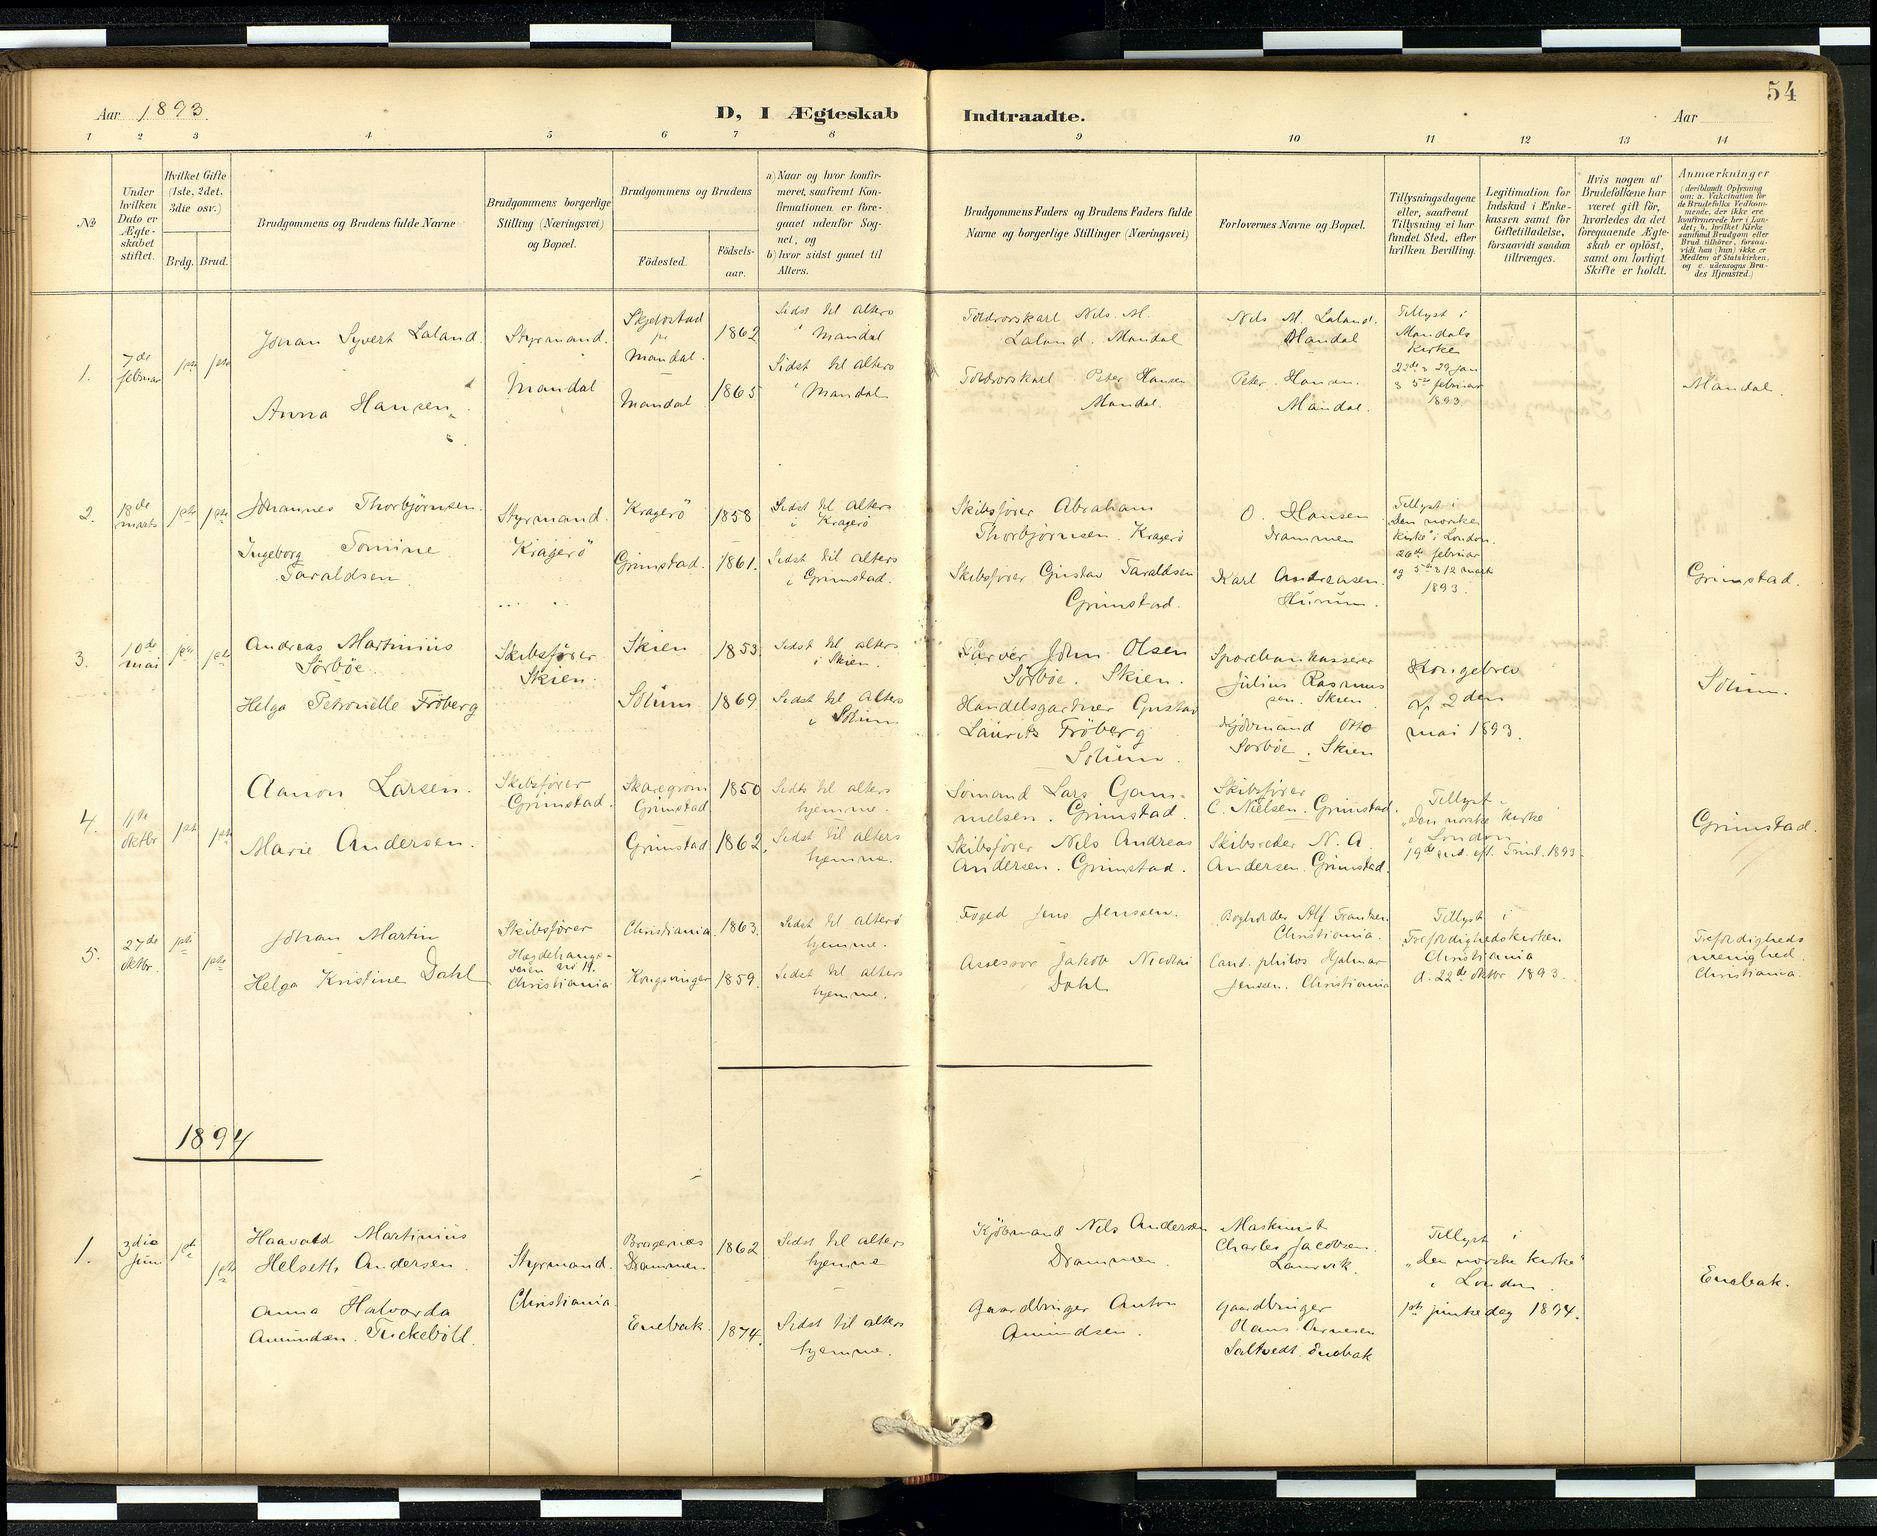 54
Aar 1893.
D, I Ægteskab Indtraadte.
Aar
1 2 3 4 5 6 7 8 9 10 11 12 13 14
№
Under
hvilken
Dato er
Ægte-
skabet
stiftet.
Hvilket Gifte
(1ste, 2det,
3die osv.)
Brdg. Brud.
Brudgommens og Brudens fulde Navne
Brudgommens borgerlige
Stilling (Næringsvei)
og Bopæl.
Brudgommens og Brudens
Fødested.
Fødsels-
aar.
a) Naar og hvor konfir-
meret, saafremt Kon-
firmationen er fore-
gaaet udenfor Sog-
net, og
b) hvor sidst gaaet til
Alters.
Brudgommens Faders og Brudens Faders fulde
Navne og borgerlige Stillinger (Næringsvei)
Forlovernes Navne og Bopæl.
Tillysningsdagene
eller, saafremt
Tillysning ei har
fundet Sted, efter
hvilken Bevilling.
Legitimation for
Indskud i Enke-
kassen samt for
Giftetilladelse,
forsaavidt saadan
tiltrænges.
Hvis nogen af
Brudefolkene har
været gift før,
hvorledes da det
foregaaende Ægte-
skab er opløst,
samt om lovligt
Skifte er holdt.
Anmærkninger
(deriblandt Oplysning
om: a. Vakcination for
de Brudefolks Vedkom-
mende, der ikke ere
konfirmerede her i Lan-
det; b. hvilket Kirke
samfund Brudgom eller
Brud tilhører, forsaa-
vidt han (hun) ikke er
Medlem af Statskirken,
og c. udensogns Bru-
des Hjemsted.)
1.
7de
februar
1ste 1ste
Johan Syvert Laland.
Anna Hansen
Styrmand.
Mandal
Mandal.
Mandal
1862
1865
Sidst til alters
i Mandal
Sidst til alters
i Mandal
Toldrorskarl Nils M.
Laland. Mandal
Toldrorskarl Peter Hansen
Mandal.
Nils M. Laland.
Mandal
Peter Hansen.
Mandal.
Tillyst i
Mandals
kirke
22de & 29 jan
& 5te februar
1893.
Mandal.
2.
18de
marts
1ste 1ste
Johannes Thorbjørnsen.
Ingeborg Tomine
Taraldsen.
Styrmand.
Kragerö
Kragerö
Grimstad.
1858
1861.
Sidst til alters
i Kragerö
Sidst til alters
i Grimstad.
Skibsfører Abraham
Thorbjørnsen. Kragerö
Skibsfører Gustav Taraldsen
Grimstad.
O. Hansen
Drammen
Karl Andreasen.
Hurum.
Tillyst i
"Den norske
kirke" i London.
26de februar
og 5te & 12 marts
1893.
Grimstad.
3.
10de
mai
1ste 1ste
Andreas Martinius
Sörböe.
Helga Petronelle Fröberg
Skibsfører.
Skien.
Skien
Solum
1853
1869
Sidst til alters
i Skien.
Sidst til alters
i Solum
Garver John Olsen
Sörböe. Skien.
Handelsgartner Gustav
Laurits Fröberg
Solum.
Sparebankkasserer
Julius Rasmus
sen. Skien.
Kjøbmand Otto
Sorböe. Skien
Kongebrev
af 2den
mai 1893.
Solum.
4.
11te
oktbr
1ste 1ste
Aanon Larsen.
Marie Andersen.
Skibsfører
Grimstad.
Grimstad
Grimstad
1850
1862.
Sidst til alters
hjemme.
Sidst til alters
hjemme.
Sömand Lars Gom-
melsen. Grimstad.
Skibsfører Nils Andreas
Andersen. Grimstad.
Skibsfører
C. Nielsen. Grimstad.
Skibsreder N. A.
Andersen. Grimstad.
Tillyst i
"Den norske kirke
i London
19de s. eft. Trint. 1893.
Grimstad.
5.
27de
oktbr.
1ste 1ste
Johan Martin
Helga Kristine Dahl
Skibsfører
Hægdehaugs-
veien no 19.
Christiania
Christiania.
Kongsvinger
1863.
1859.
Sidst til alters
hjemme.
Sidst til alters
hjemme.
Foged Jens Jenssen.
Assessor Jakob Nicolai
Dahl
Bogholder Alf Frantzen
Christiania.
Cand. philos Hjalmar
Jensen. Christiania
Tillyst i
Trefoldighedskirken
Christiania
d. 22de oktbr 1893.
Trefoldigheds
menighed.
Christiania.
1894
1.
3die
Juni
1ste 1ste
Haavald Martinius
Helseth Andersen.
Anna Halvorda
Amundsen. Tuckeböll.
Styrmand.
Christiania.
Bragernæs
Drammen
Enebak.
1862
1874.
Sidst til alters
hjemme
Sidst til alters
hjemme.
Kjöbmand Nils Andersen
Drammen.
Gaardbruger Anton
Amundsen.
Maskinist
Charles Jacobsen.
Laurvik.
Gaardbruger
Hans Arnesen
Saltvedt. Enebak
Tillyst i
"den norske kirke"
i London
1ste pinsedag 1894.
Enebak.